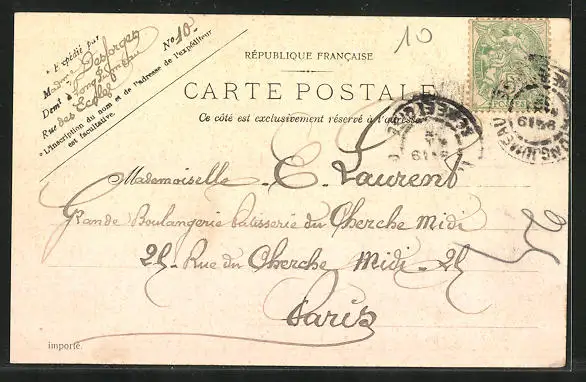 * Expédié par
M
Desforges
Demt à Longjumeau
Rue des Ecoles No 10.
* L'inscription du nom et de l'adresse de l'expéditeur
est facultative.
10
RÉPUBLIQUE FRANÇAISE
CARTE POSTALE
Ce côté est exclusivement réservé à l'adresse
POSTES
LONGJUMEAU
Mademoiselle E. Laurent
Grande Boulangerie patisserie du Cherche Midi
25 - Rue du Cherche Midi - 25
Paris
importé.